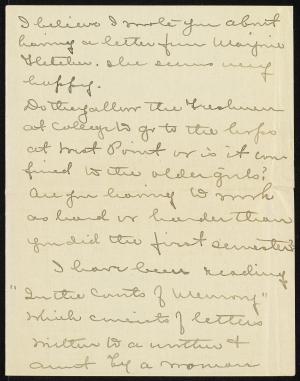 I believe I wrote you about
having a letter from Marjorie
Fletcher. She seems very
happy.
Do they allow the Freshmen
at College to go to the hops
at West Point or is it con
fined to the older girls?
Are you having to work
as hard or harder than
you did the first semester?
I have been reading
"In the Courts of Memory"
which consists of letters
written to a mother &
aunt by a woman